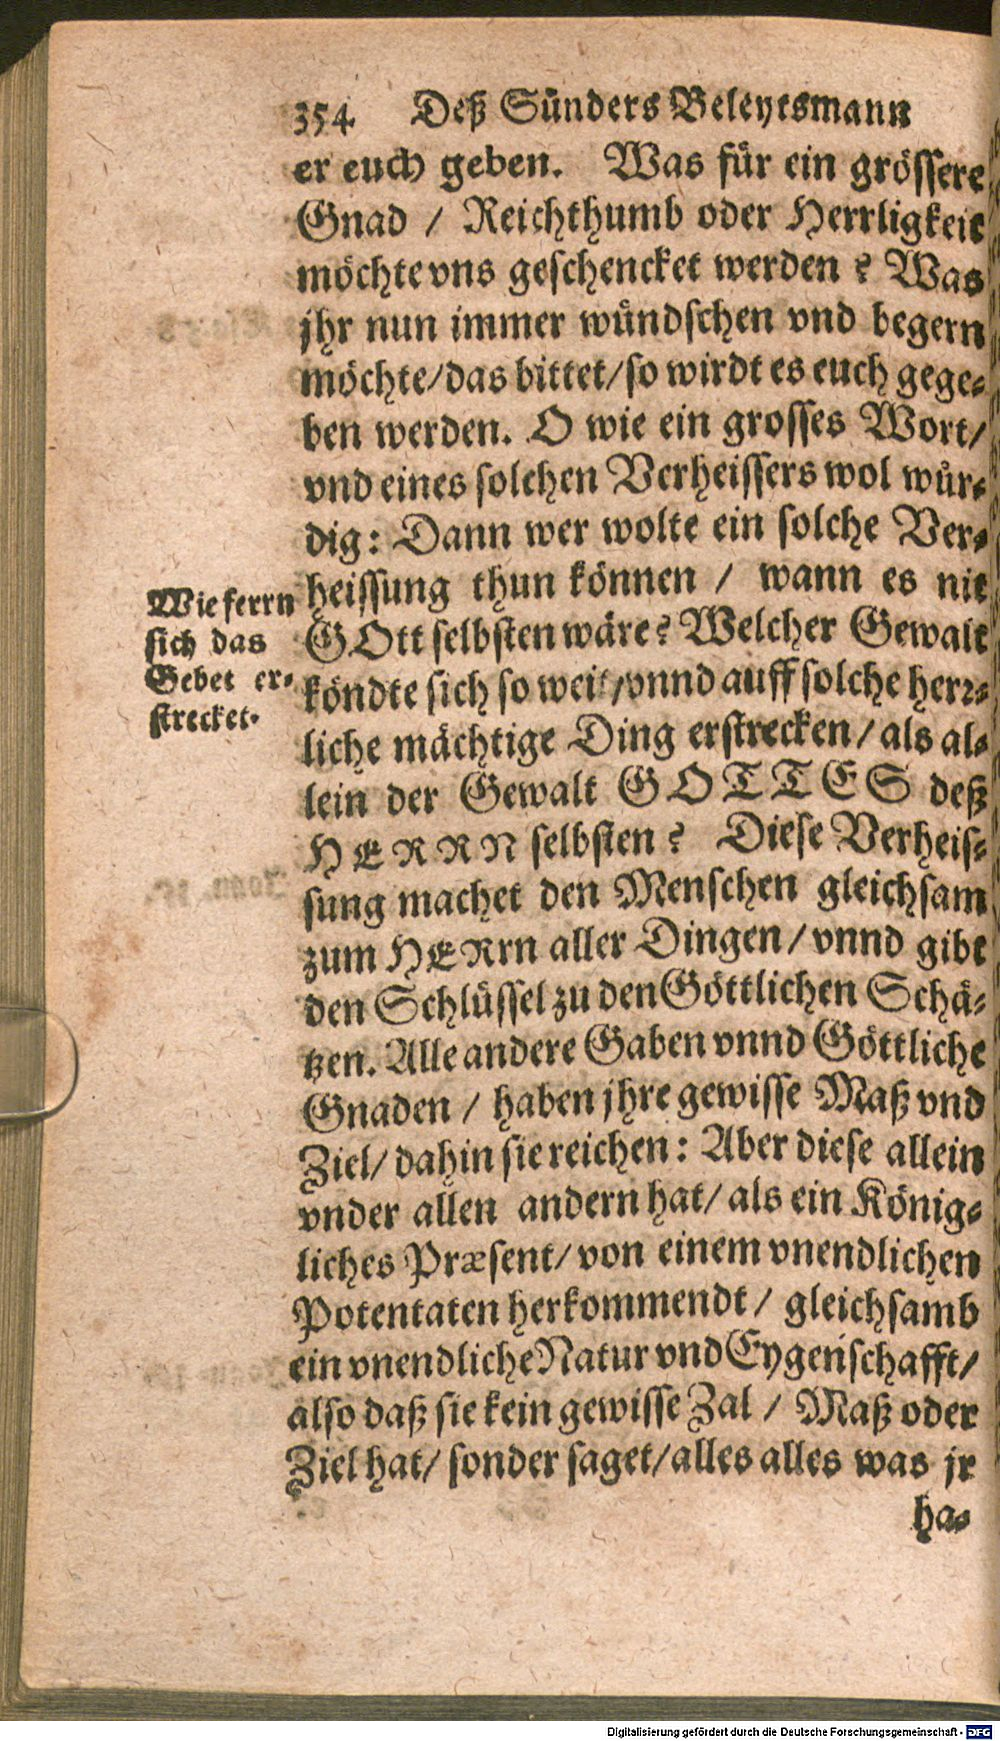 354 Deß Sünders Beleytsmann
er euch geben. Was für ein grössere
Gnad / Reichthumb oder Herrligkeit
möchte vns geschencket werden? Was
jhr nun immer wündschen vnd begern
möchte/das bittet/so wirdt es euch gege-
ben werden. O wie ein grosses Wort/
vnd eines solchen Verheissers wol wür-
dig: Dann wer wolte ein solche Ver-
heissung thun können / wann es nit
GOtt selbsten wäre? Welcher Gewalt
köndte sich so weit/vnnd auff solche herr-
liche mächtige Ding erstrecken/als al-
lein der Gewalt GOTTES deß
HERRN selbsten? Diese Verheis-
sung machet den Menschen gleichsam
zum HERrn aller Dingen/vnnd gibt
den Schlüssel zu den Göttlichen Schä-
tzen. Alle andere Gaben vnnd Göttliche
Gnaden / haben jhre gewisse Maß vnd
Ziel/dahin sie reichen: Aber diese allein
vnder allen andern hat/als ein König-
liches Præsent/von einem vnendlichen
Potentaten herkommendt / gleichsamb
ein vnendliche Natur vnd Eygenschafft/
also daß sie kein gewisse Zal / Maß oder
Ziel hat/sonder saget/alles alles was jr
ha-
Wie ferrn
sich das
Gebet er-
strecket.
Digitalisierung gefördert durch die Deutsche Forschungsgemeinschaft - DFG